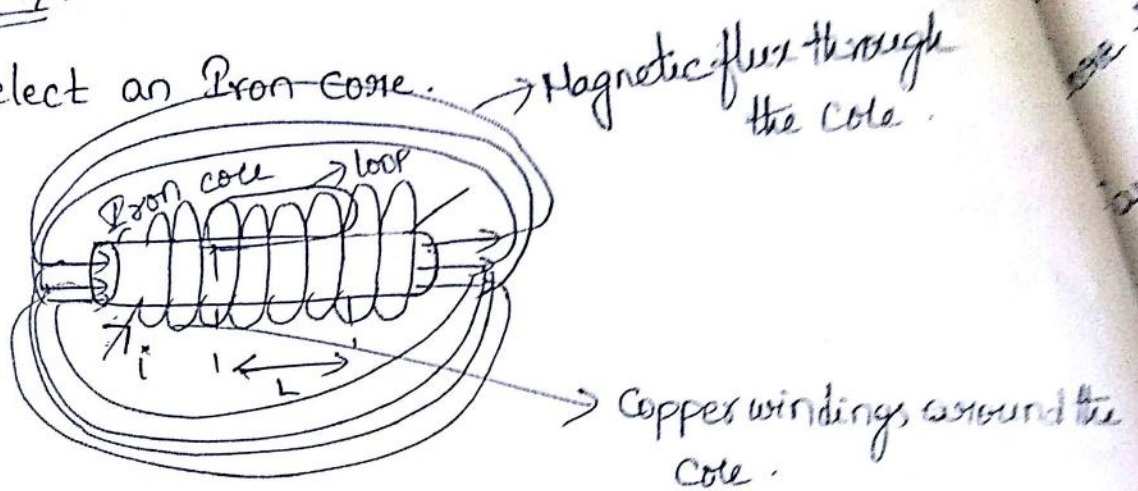 elect an Iron-core.
Magnetic flux through
the core.
Iron core
loop
i
L
Copper windings around the
core.